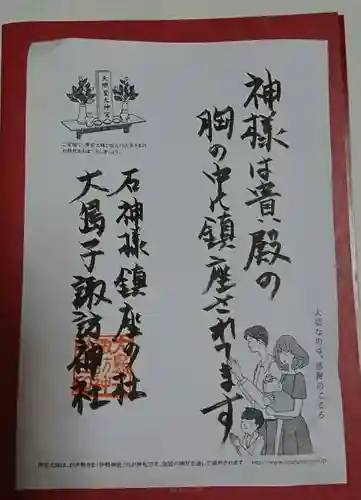 神様は貴殿の
胸の中に鎮座されてます
石神様鎮座の社
大島子諏訪神社
天照皇大神宮
大切なのは、感謝のこころ